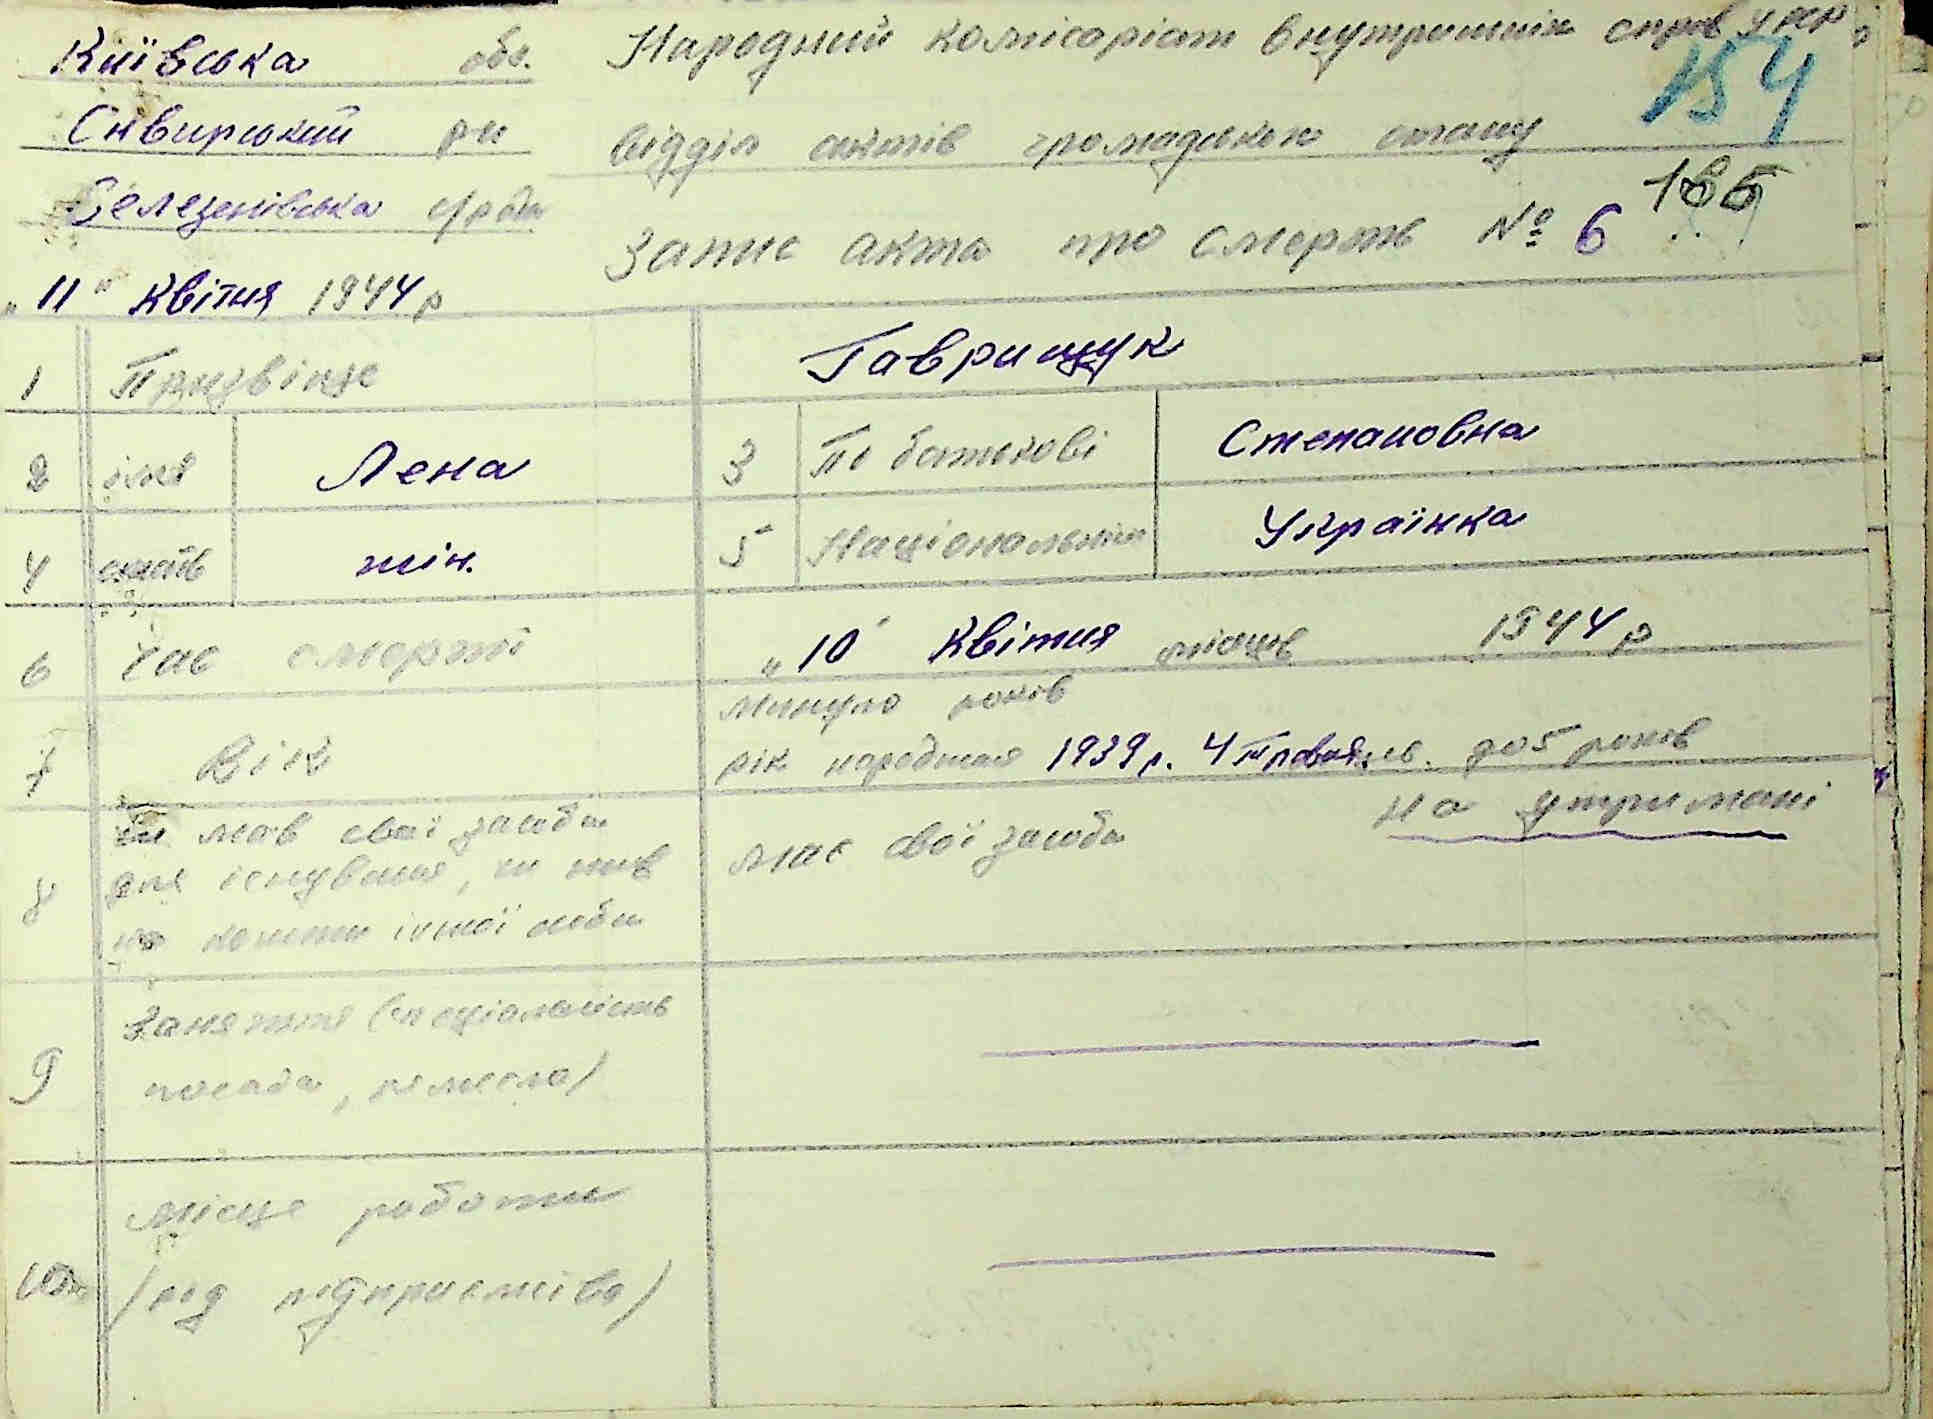 Київська обл. Народний комісаріат внутрішніх справ УРСР
154
Сквирський р-н відділ актів громадського стану
Селезенівська с/рада
Запис акта про смерть № 6 155
"11" Квітня 1944 р
1 Призвіще Гаврищук
2 імя Лена 3 По батькові Степановна
4 стать жін. 5 Національність Українка
6 Час смерті "10" Квітня місяць 1944 р
минуло років
7 Вік рік народження 1939 р. 4 до 5 років
чи мав свої засоби на утримані
8 для існування, чи жив має свої засоби
на кошти іншої особи
9 Заняття (спеціальність
посада, ремесло)
10 Місце роботи
(род підприємства)